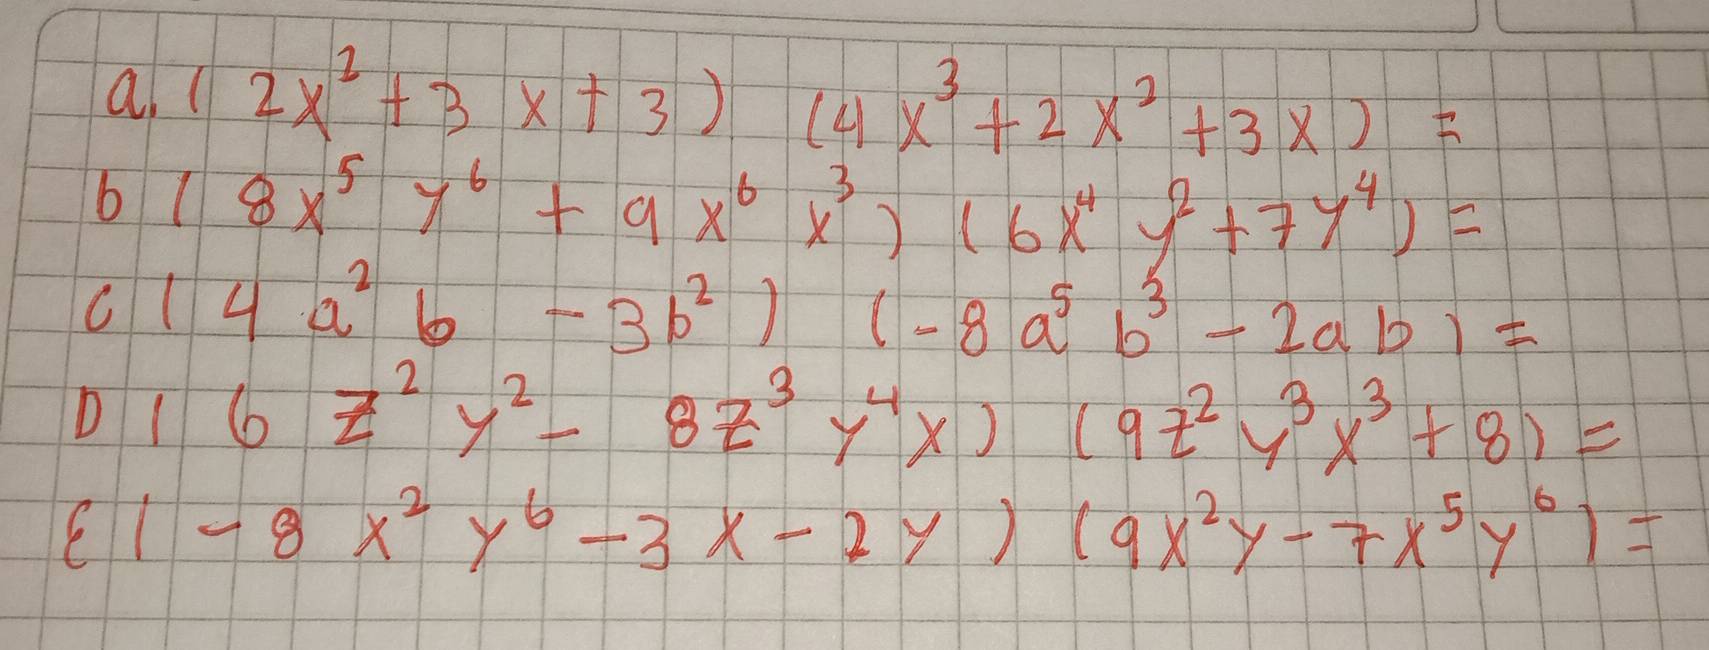 a. (2x² + 3x + 3) (4x³ + 2x² + 3x) =
b (8x⁵ y⁶ + 9x⁶ x³) (6x⁴ y² + 7y⁴) =
c (4a² b - 3b²) (-8a⁵ b³ - 2ab) =
D (6z² y² - 8z³ y⁴x) (9z² y³ x³ + 8) =
E (-8x² y⁶ - 3x - 2y) (9x²y - 7x⁵y⁶) =